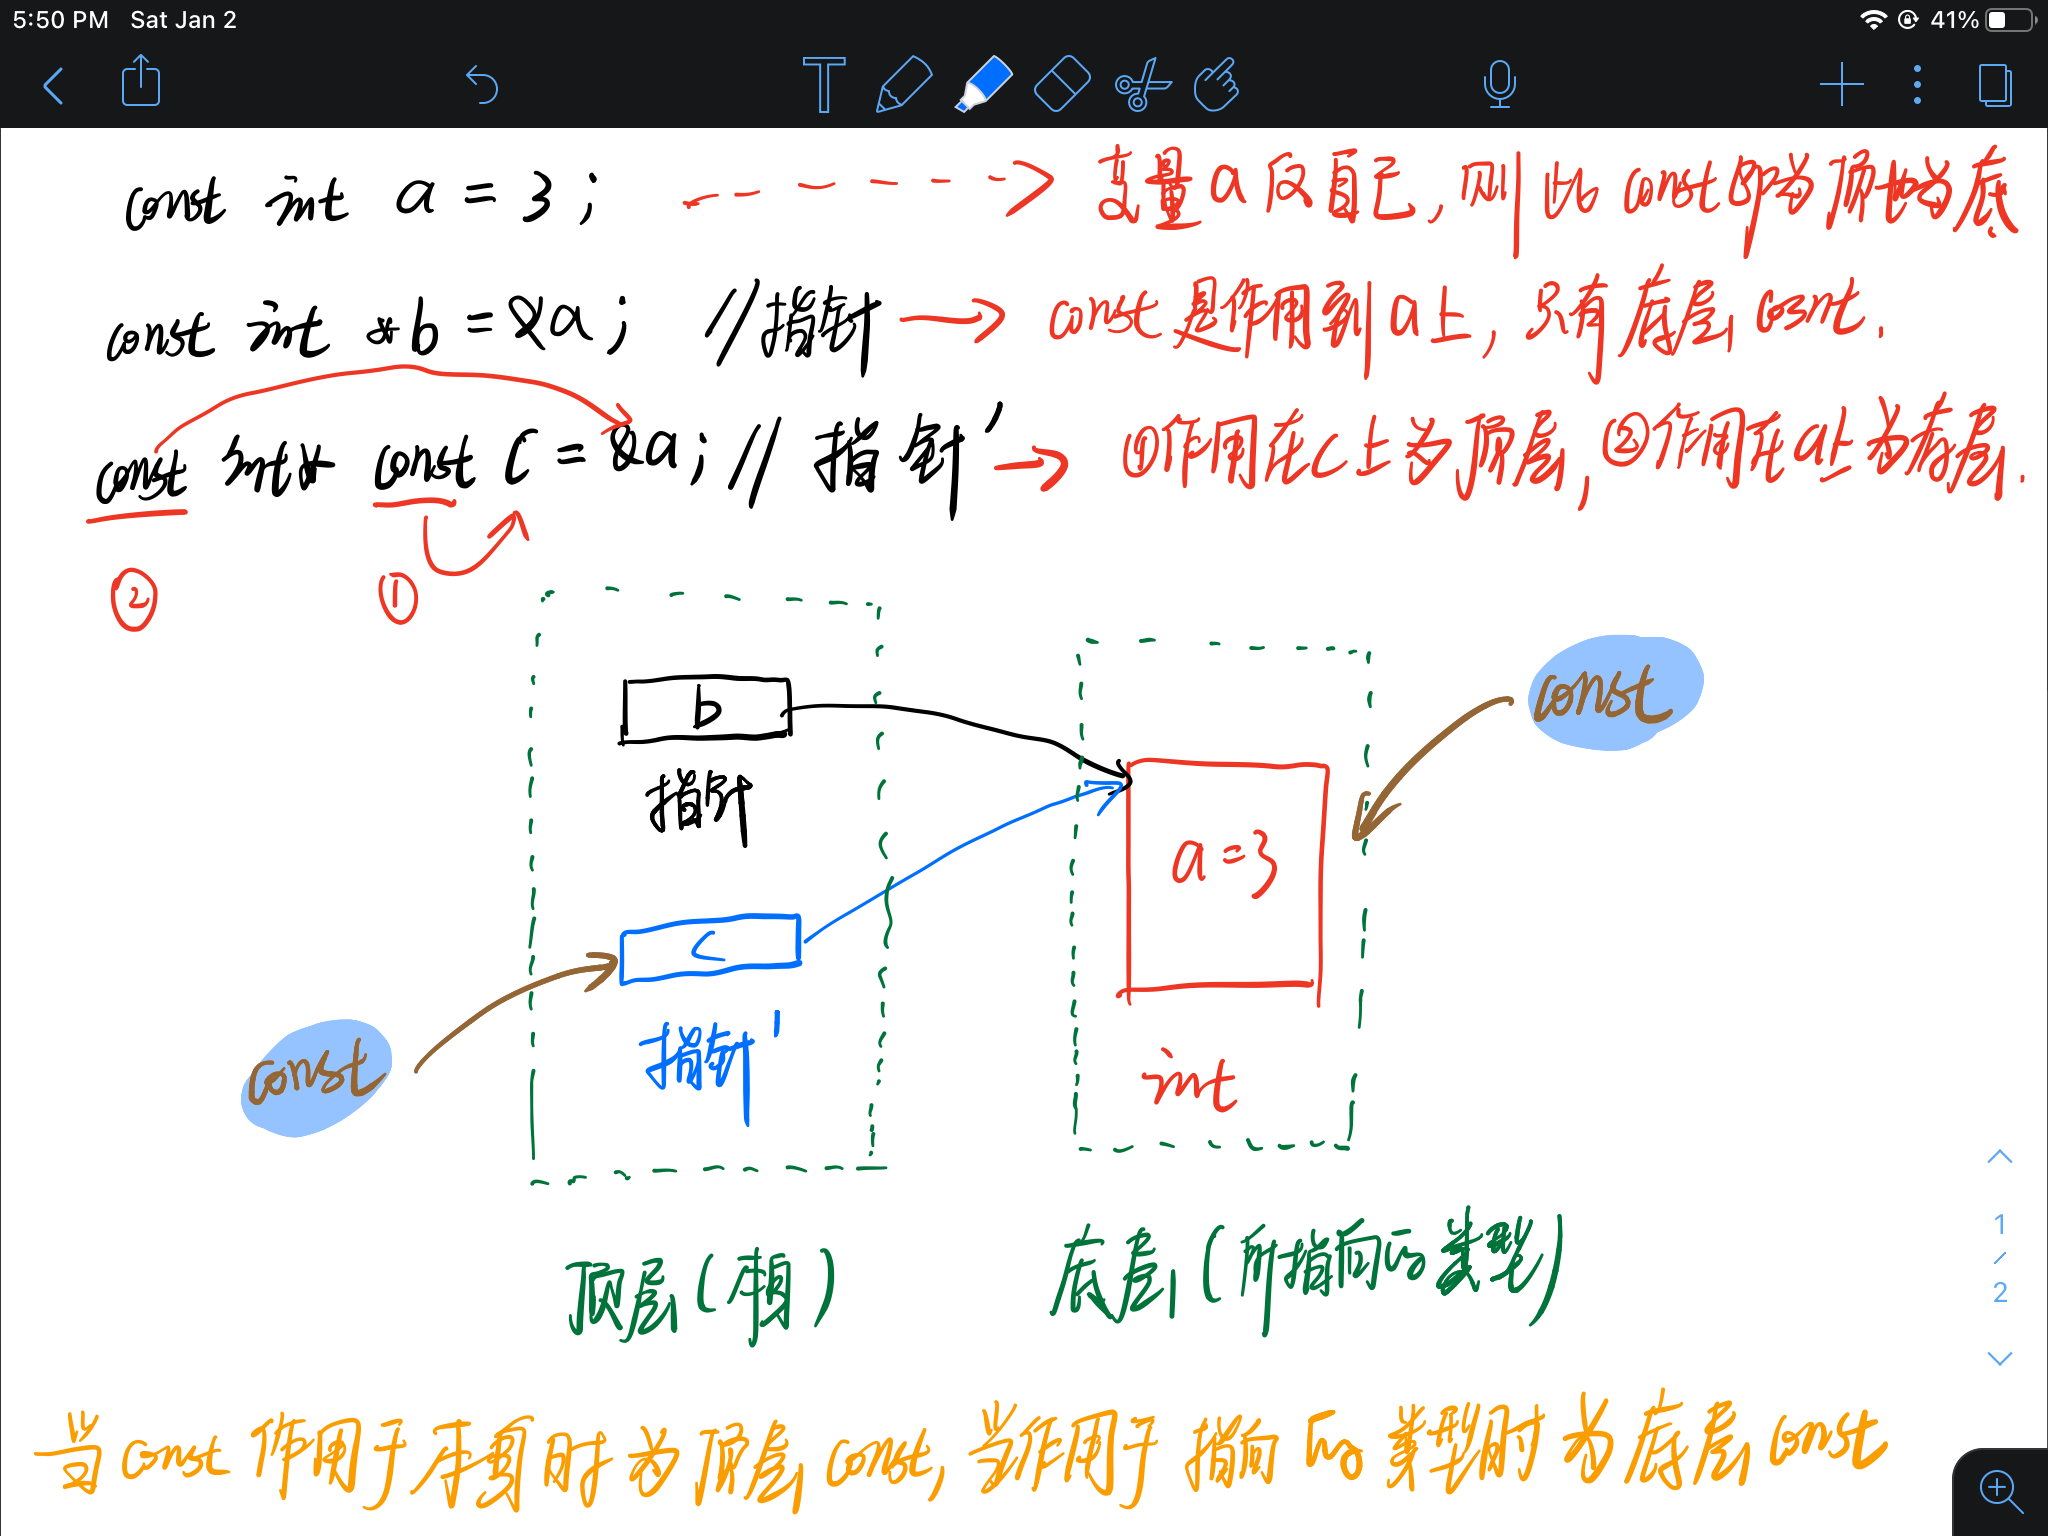 5:50 PM Sat Jan 2
41%
T
const int a = 3 ; 变量a仅自己,则此const即当顶也当底
const int *b = &a ; //指针 const是作用到a上,只有底层cosnt.
const int* const c = &a ; // 指针' ①作用在c上为顶层,②作用在a上为底层.
② ①
b
指针
const
a=3
c
指针'
const
int
顶层(本身)
底层(所指向的类型)
1
/
2
当const作用于本身时为顶层const,当作用于指向的类型时为底层const